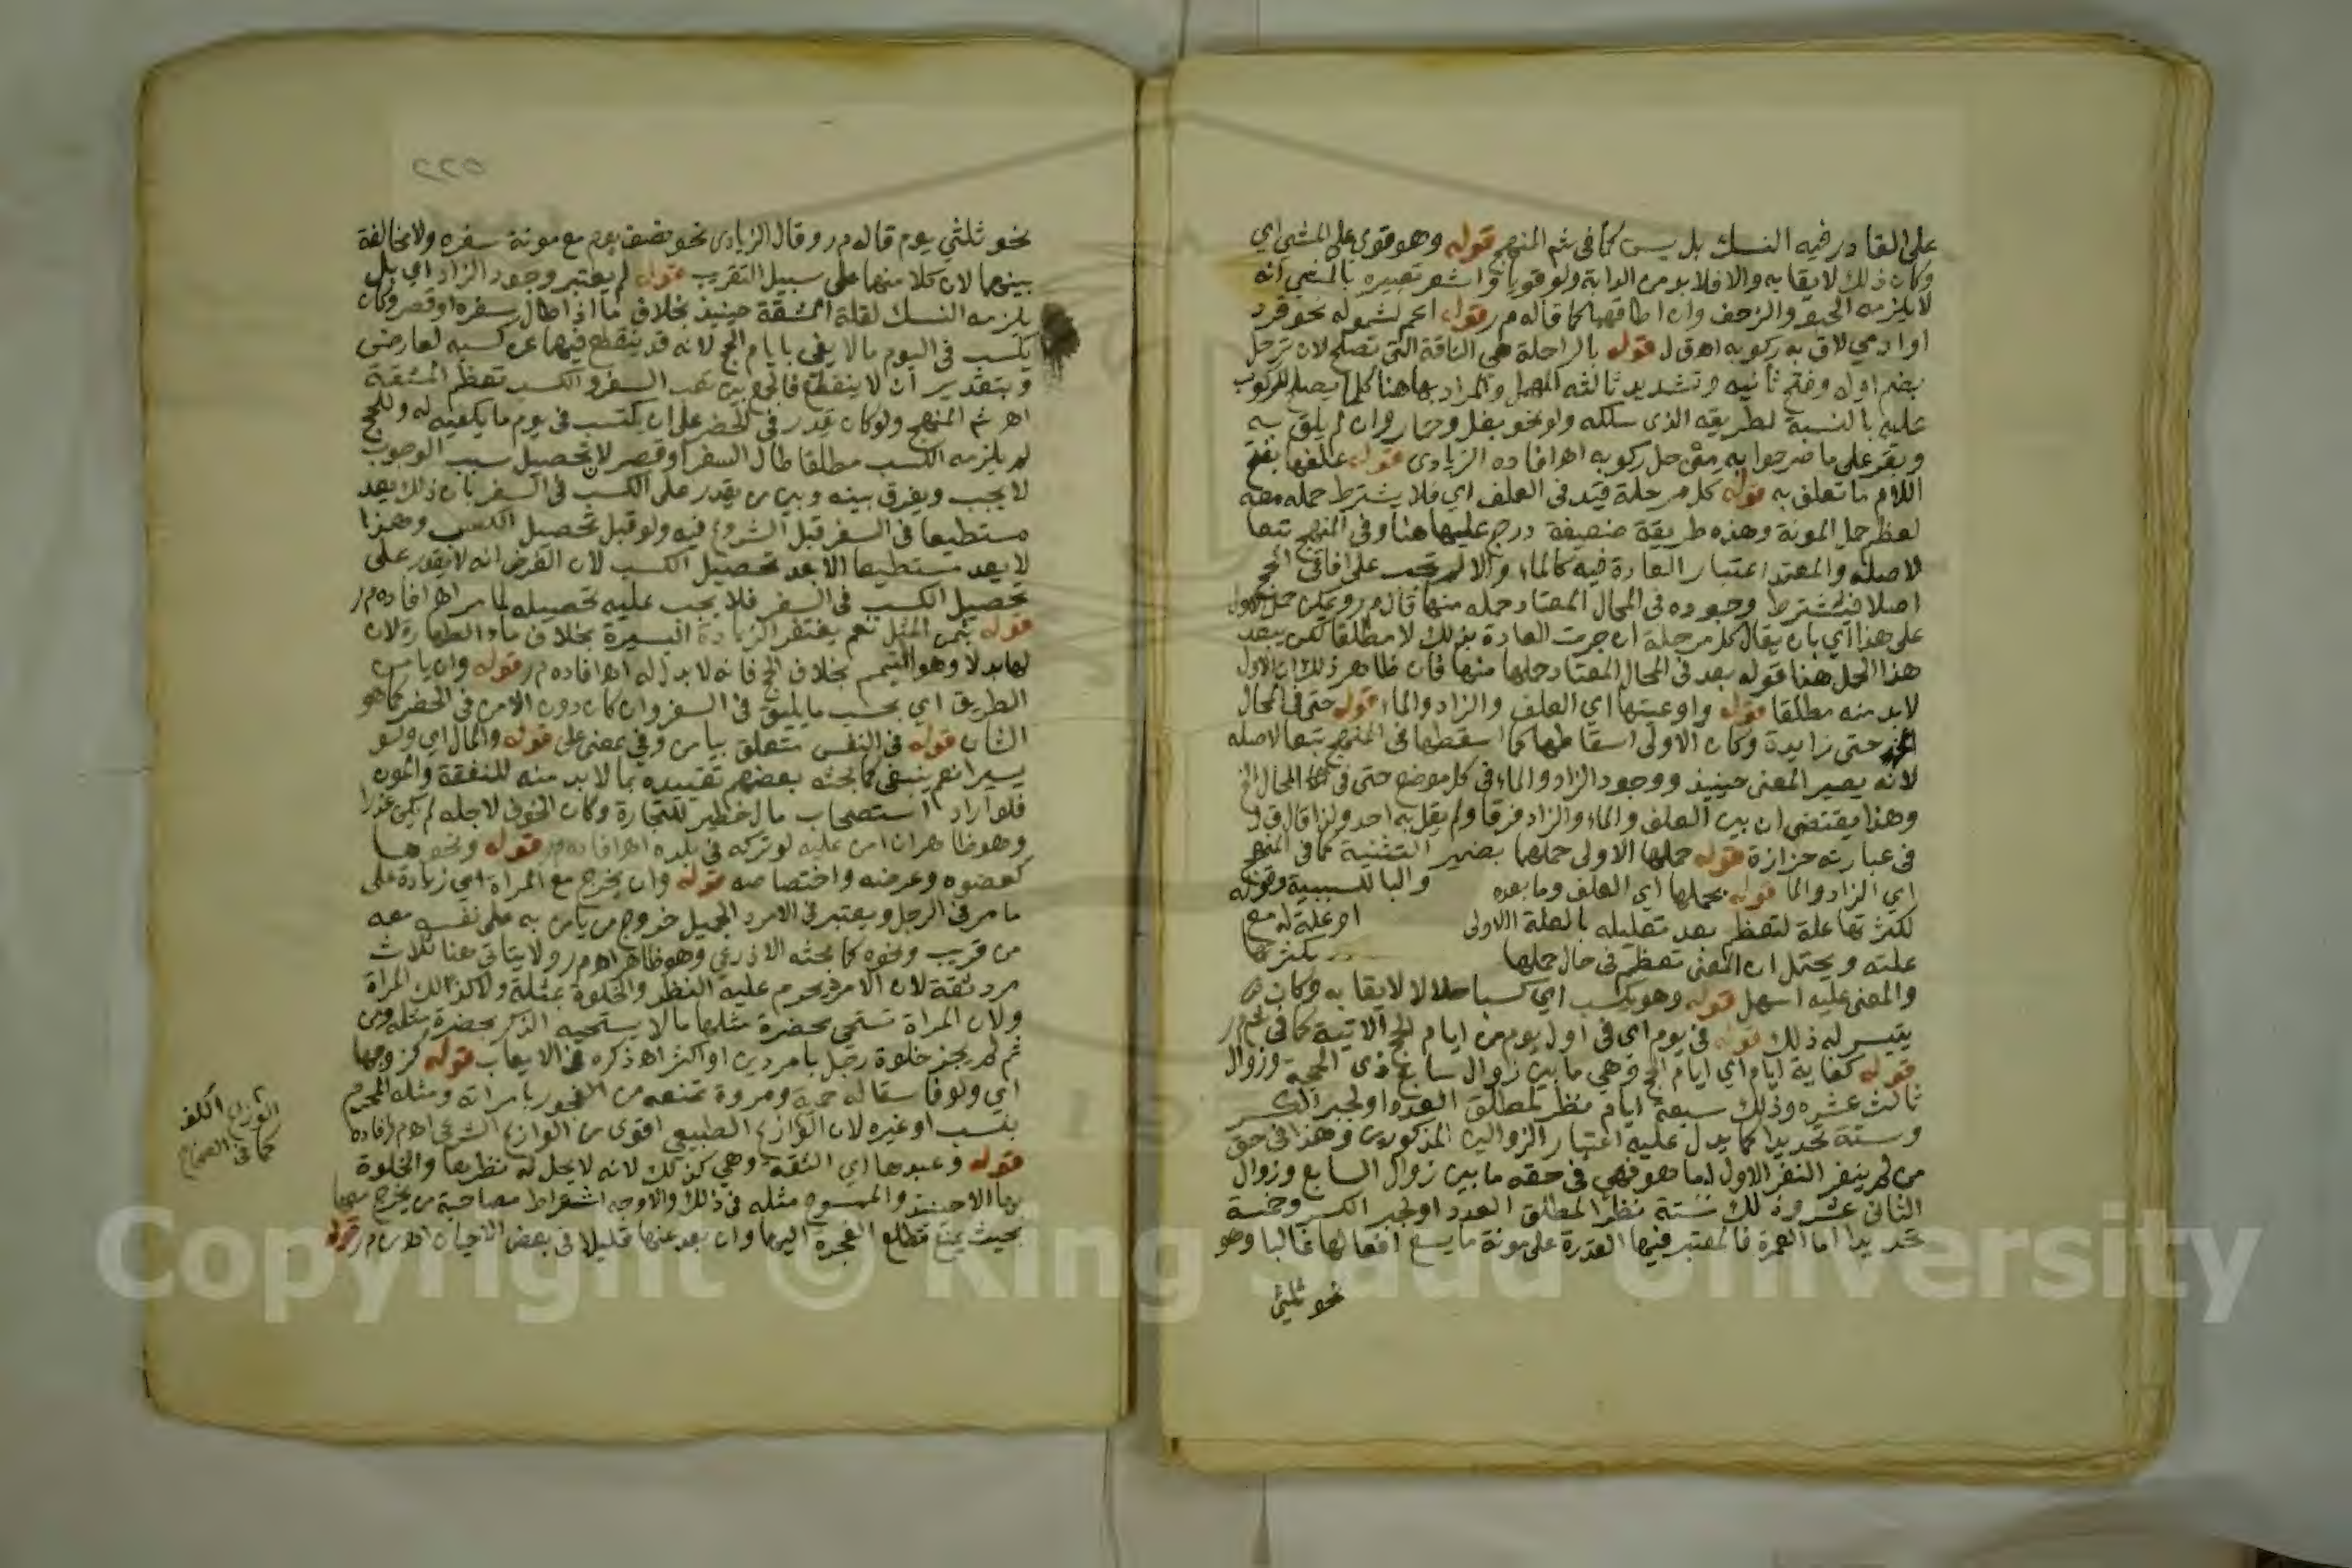 على القادر فيه النسك بل يسن كما في شم المنهج قوله وهو قوي على المشي اي
وكان ذلك لايقا به والا فلابد من الدابة ولو قويا واشعر تعبيره بالمشي انه
لا يلزمه الحبو والزحف وان اطاقهما كما قاله م ر قوله اعم لشموله نحو قرد
او ادمي لاق به ركوبه اهـ ق ل قوله بالراحلة هي الناقة التي تصلح لان ترحل
بضم اوله وفتح ثانيه وتشديد ثالثه المهمل والمراد بها هنا كلما يصلح للركوب
عليه بالنسبة لطريقه الذي سلكه ولو نحو بغل وحمار وان لم يلق به
وبقر على ما صرحوا به من حل ركوبه اهـ افاده الزيادي قوله علفها بفتح
اللام ما تعلق به قوله كل مرحلة قيد في العلف اي فلا يشترط حمله معه
لعظم حمل المونة وهذه طريقة ضعيفة درج عليها هنا وفي المنهج تبعا
لاصله والمعتمد اعتبار العادة فيه كالماء والا لم تجب على افاقي الحج
اصلا فيشترط وجوده في المحال المعتاد حمله منها قال م ر ويمكن حمل الاول
على هذا اي بان يقال كل مرحلة ان جرت العادة بذلك لا مطلقا لكن يبعد
هذا الحمل هنا قوله بعد في المحال المعتاد حملها منها فان ظاهر ذلك ان الاول
لابد منه مطلقا قوله واوعيتها اي العلف والزاد والماء قوله حتى في المحال
الخ حتى زايدة وكان الاولى اسقاطها كما اسقطها في المنهج تبعا لاصله
لانه يصير المعنى حينيذ ووجود الزاد والماء في كل موضع حتى في المحال الخ
وهذا يقتضي ان بين العلف والماء والزاد فرقا ولم يقل به احد ولذا قال ق ل
في عبارته حزازة قوله حملها الاولى حملهما بضمير التثنية كما في المنهج
اي الزاد والما قوله بحملها اي العلف وما بعده والبا للسببية وقوله
لكثرتها علة لتعظم بعد تعليله بالعلة الاولى او علة له مع
علته ويحتمل ان المعنى تعظم في حال حملها بكثرتها
والمعنى عليه اسهل قوله وهو يكسب اي كسبا حلالا لايقا به وكان
يتيسر له ذلك قوله في يوم اي في اول يوم من ايام الحج الاتية كما في
قوله كفاية ايام اي ايام الحج وهي ما بين زوال سابع ذي الحجة وزوال
ثالث عشره وذلك سبعة ايام نظرا لمطلق العدد او لجبر الكسر
وستة تحديدا كما يدل عليه اعتبار الزوالين المذكورين وهذا في حق
من لم ينفر النفر الاول اما هو فهي في حقه ما بين زوال السابع وزوال
الثاني عشر وذلك ستة نظرا لمطلق العدد او لجبر الكسر وخمسة
تحديدا اما العمرة فالمعتبر فيها القدرة على مونة ما يسع افعالها غالبا وهو
نحو ثلثي
٢٢٥
نحو ثلثي يوم قاله م ر وقال الزيادي نحو نصف يوم مع مونة سفره ولا مخالفة
بينهما لان كلا منهما على سبيل التقريب قوله لم يعتبر وجود الزاد اي بل
يلزمه النسك لقلة المشقة حينيذ بخلاف ما اذا طال سفره او قصر وكان
يكسب في اليوم ما لا يفي بايام الحج لانه قد ينقطع فيها عن كسبه لعارض
وبتقدير ان لا ينقطع فالجمع بين تعب السفر والكسب تعظم المشقة
اهـ شم المنهج ولو كان يقدر في الحضر على ان يكتسب في يوم ما يكفيه له وللحج
لم يلزمه الكسب مطلقا طال السفر او قصر لان تحصيل سبب الوجوب
لا يجب ويفرق بينه وبين من يقدر على الكسب في السفر بان ذلك يعد
مستطيعا في السفر قبل الشروع فيه ولو قبل تحصيل الكسب وهذا
لا يعد مستطيعا الا بعد تحصيل الكسب لان الفرض انه لا يقدر على
تحصيل الكسب في السفر فلا يجب عليه تحصيله لما مر اهـ افاده م ر
قوله بثمن المثل نعم يغتفر الزيادة اليسيرة بخلاف ماء الطهارة لان
لها بدلا وهو التيمم بخلاف الحج فانه لا بدل له اهـ افاده م ر قوله وان يامن
الطريق اي بحسب ما يليق في السفر وان كان دون الامن في الحضر كما هو
الشان قوله في النفس متعلق بيامن وفي بمعنى على قوله والمال اي ولو
يسيرا نعم ينبغي كما بحثه بعضهم تقييده بما لابد منه للنفقة والمون
فلو اراد استصحاب مال خطير للتجارة وكان الخوف لاجله لم يكن عذرا
وهو ظاهر ان امن عليه لو تركه في بلده اهـ افاده م ر قوله ونحوها
كعضوه وعرضه واختصاصه قوله وان يخرج مع المراة اي زيادة على
ما مر في الرجل ويعتبر في الامرد الجميل خروج من يامن به على نفسه معه
من قريب ونحوه كما بحثه الاذرعي وهو ظاهر اهـ م ر ولا يتاتى هنا ثلاث
مرد ثقة لان الامرد يحرم عليه النظر والخلوة بمثله ولا كذلك المراة
ولان المراة تستحي بحضرة مثلها ما لا يستحيه الذكر بحضرة مثله ومن
ثم لم يجز خلوة رجل بامردين او اكثر اهـ ذكره في الايعاب قوله كزوجها
اي ولو فاسقا له حمية ومروة تمنعه من الفجور بامراته ومثله المحرم
بنسب او غيره لان الوازع الطبيعي اقوى من الوازع الشرعي اهـ م ر افاده
قوله وعبدها اي الثقة وهي كذلك لانه لا يحل له نظرها والخلوة
بها الا حينيذ والممسوح مثله في ذلك والاوجه اشتراط مصاحبة من يخرج معها
بحيث يمنع تطلع الفجرة اليها وان بعد عنها قليلا في بعض الاحيان اهـ م ر قوله
الوزاع الكف
كما في الصحاح
Copyright © King Saud University